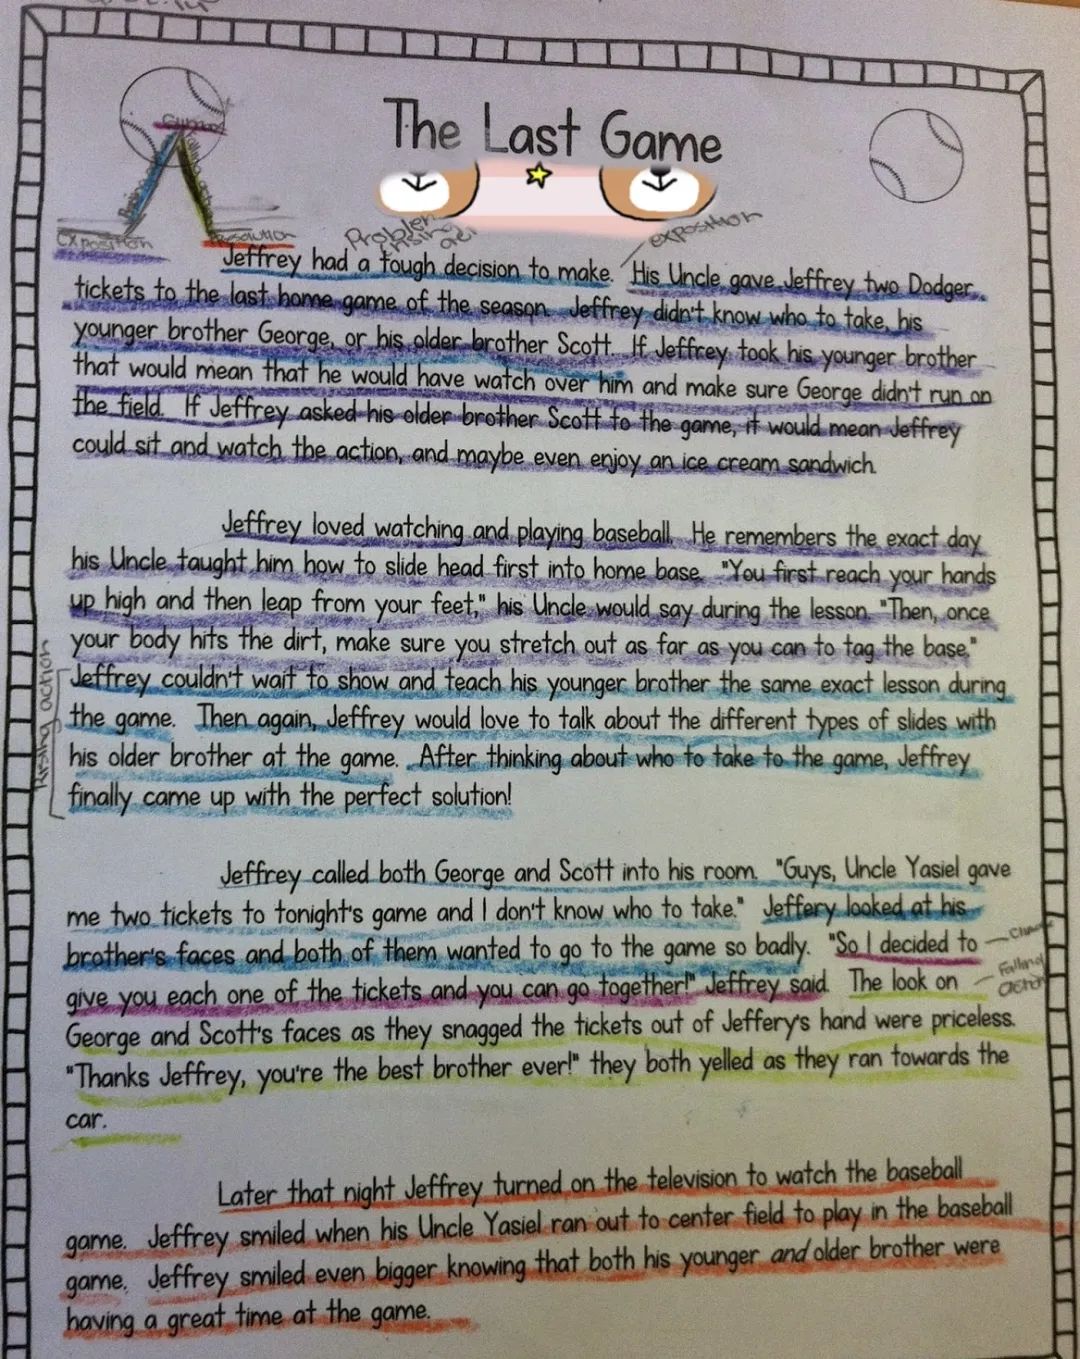 The Last Game
exposition
Resolution
Problem
rising
exposition
Jeffrey had a tough decision to make. His Uncle gave Jeffrey two Dodger
tickets to the last home game of the season. Jeffrey didn't know who to take, his
younger brother George, or his older brother Scott. If Jeffrey took his younger brother
that would mean that he would have watch over him and make sure George didn't run on
the field. If Jeffrey asked his older brother Scott to the game, it would mean Jeffrey
could sit and watch the action, and maybe even enjoy an ice cream sandwich.
Jeffrey loved watching and playing baseball. He remembers the exact day
his Uncle taught him how to slide head first into home base. "You first reach your hands
up high and then leap from your feet," his Uncle would say during the lesson. "Then, once
your body hits the dirt, make sure you stretch out as far as you can to tag the base."
Jeffrey couldn't wait to show and teach his younger brother the same exact lesson during
the game. Then again, Jeffrey would love to talk about the different types of slides with
his older brother at the game. After thinking about who to take to the game, Jeffrey
finally came up with the perfect solution!
Rising action
Jeffrey called both George and Scott into his room. "Guys, Uncle Yasiel gave
me two tickets to tonight's game and I don't know who to take." Jeffery looked at his
brother's faces and both of them wanted to go to the game so badly. "So I decided to
give you each one of the tickets and you can go together!" Jeffrey said. The look on
Falling
action
George and Scott's faces as they snagged the tickets out of Jeffery's hand were priceless.
"Thanks Jeffrey, you're the best brother ever!" they both yelled as they ran towards the
car.
Later that night Jeffrey turned on the television to watch the baseball
game. Jeffrey smiled when his Uncle Yasiel ran out to center field to play in the baseball
game. Jeffrey smiled even bigger knowing that both his younger and older brother were
having a great time at the game.